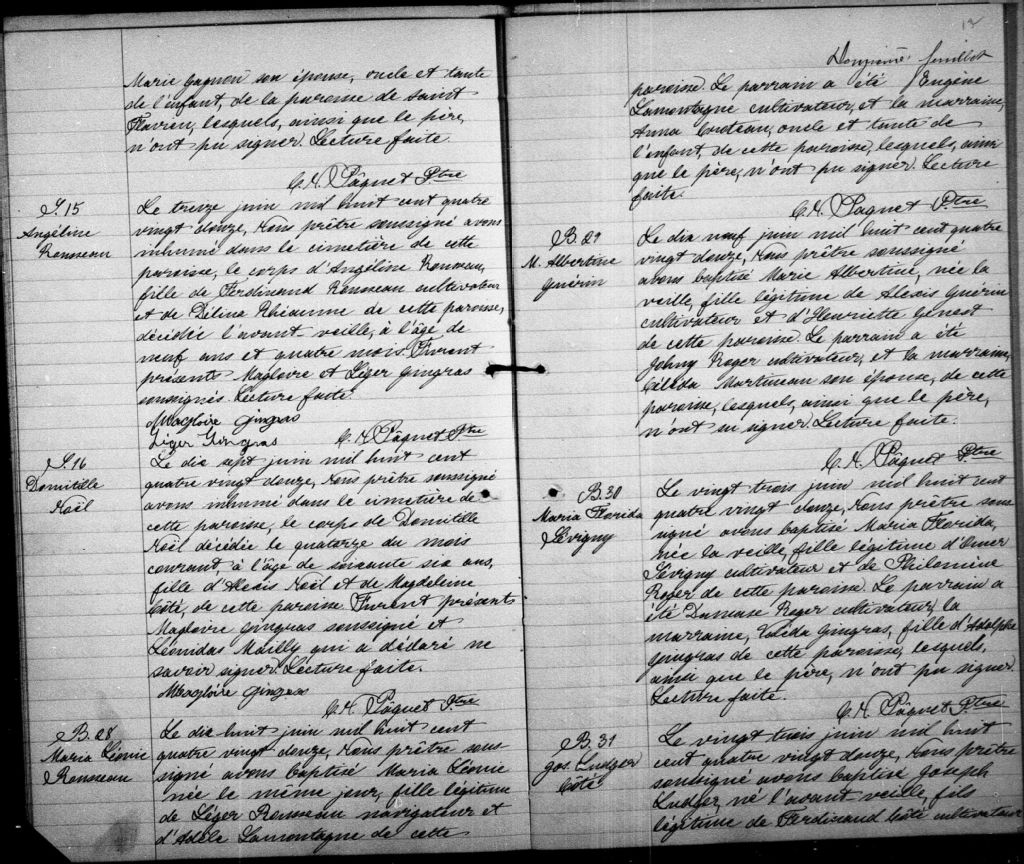 Marie Gagnon son épouse, oncle et tante
de l'enfant, de la paroisse de Saint
Flavien, lesquels, ainsi que le père,
n'ont pu signer. Lecture faite.
C. H. Pâquet Ptre
S. 15
Angéline
Rousseau
Le treize juin mil huit cent quatre
vingt douze, Nous prêtre soussigné avons
inhumé dans le cimetière de cette
paroisse, le corps d'Angéline Rousseau,
fille de Ferdinand Rousseau cultivateur
et de Délina de cette paroisse,
décédée l'avant-veille, à l'âge de
neuf ans et quatre mois. Furent
présents Magloire et Léger Gingras
soussignés. Lecture faite
Magloire Gingras
Léger Gingras C. H. Pâquet Ptre
S. 16
Domitille
Noël
Le dix sept juin mil huit cent
quatre vingt douze, Nous prêtre soussigné
avons inhumé dans le cimetière de
cette paroisse, le corps de Domitille
Noël décédée le quatorze du mois
courant à l'âge de soixante six ans,
fille d'Alexis Noël et de Magdeleine
Côté, de cette paroisse. Furent présents
Magloire Gingras soussigné et
Léonidas Mailly qui a déclaré ne
savoir signer. Lecture faite.
Magloire Gingras
C. H. Pâquet Ptre
B. 28
Maria Léonie
Rousseau
Le dix huit juin mil huit cent
quatre vingt douze, Nous prêtre sous-
signé avons baptisé Maria Léonie
née le même jour, fille légitime
de Léger Rousseau navigateur et
d'Adèle Lamontagne de cette
12
feuillet
paroisse. Le parrain a été Eugène
Lamontagne cultivateur, et la marraine,
Anna Croteau, oncle et tante de
l'enfant, de cette paroisse, lesquels, ainsi
que le père, n'ont pu signer. Lecture
faite.
C. H. Pâquet Ptre
B. 29
M. Albertine
Guérin
Le dix neuf juin mil huit cent quatre
vingt douze, Nous prêtre soussigné
avons baptisé Marie Albertine, née la
veille, fille légitime de Alexis Guérin
cultivateur et d'Henriette Genest
de cette paroisse. Le parrain a été
Johny Roger cultivateur, et la marraine,
Martineau son épouse, de cette
paroisse, lesquels, ainsi que le père,
n'ont su signer. Lecture faite.
C. H. Pâquet Ptre
B. 30
Maria Florida
Sévigny
Le vingt trois juin mil huit cent
quatre vingt douze, Nous prêtre sous-
signé avons baptisé Maria Florida,
née la veille, fille légitime d'Omer
Sévigny cultivateur et de Philomène
Roger de cette paroisse. Le parrain a
été Damase Roger cultivateur, la
marraine, Valéda Gingras, fille d'Adolphe
Gingras de cette paroisse, lesquels,
ainsi que le père, n'ont pu signer.
Lecture faite.
C. H. Pâquet Ptre
B. 31
Jos. Ludger
Côté
Le vingt trois juin mil huit
cent quatre vingt douze, Nous prêtre
soussigné avons baptisé Joseph
Ludger, né l'avant veille, fils
légitime de Ferdinand Côté cultivateur